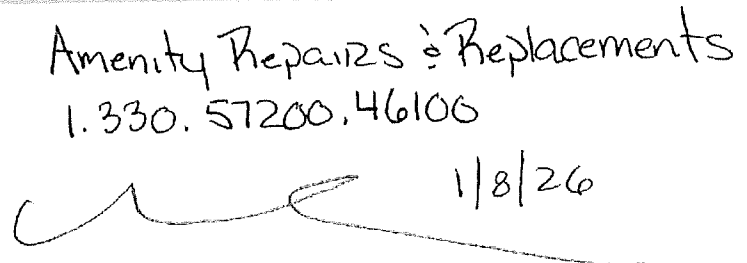 Amenity Repairs & Replacements
1.330.57200.46100
1/8/26